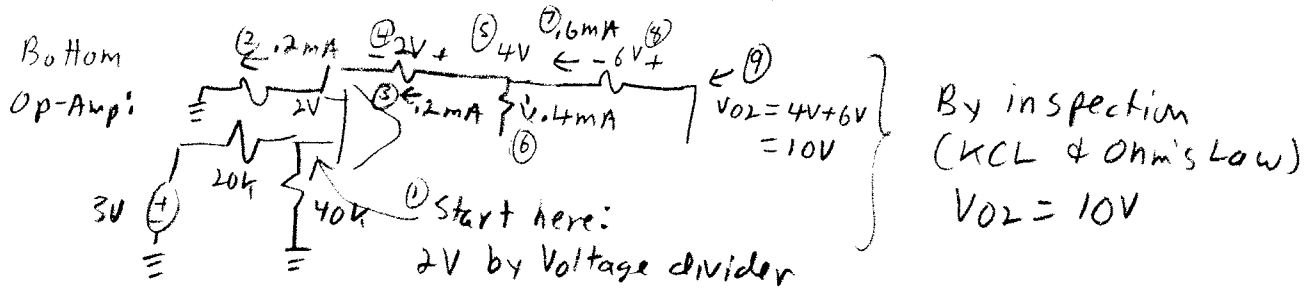 Bottom
Op-Amp:
② .2mA
④ 2V +
⑤ 4V
⑦ .6mA
- 6V + ⑧
⑨
2V
③ .2mA
.4mA
⑥
VO2 = 4V+6V
= 10V
20k
3V
+
-
40k
① Start here:
2V by Voltage divider
By inspection
(KCL & Ohm's Law)
VO2 = 10V